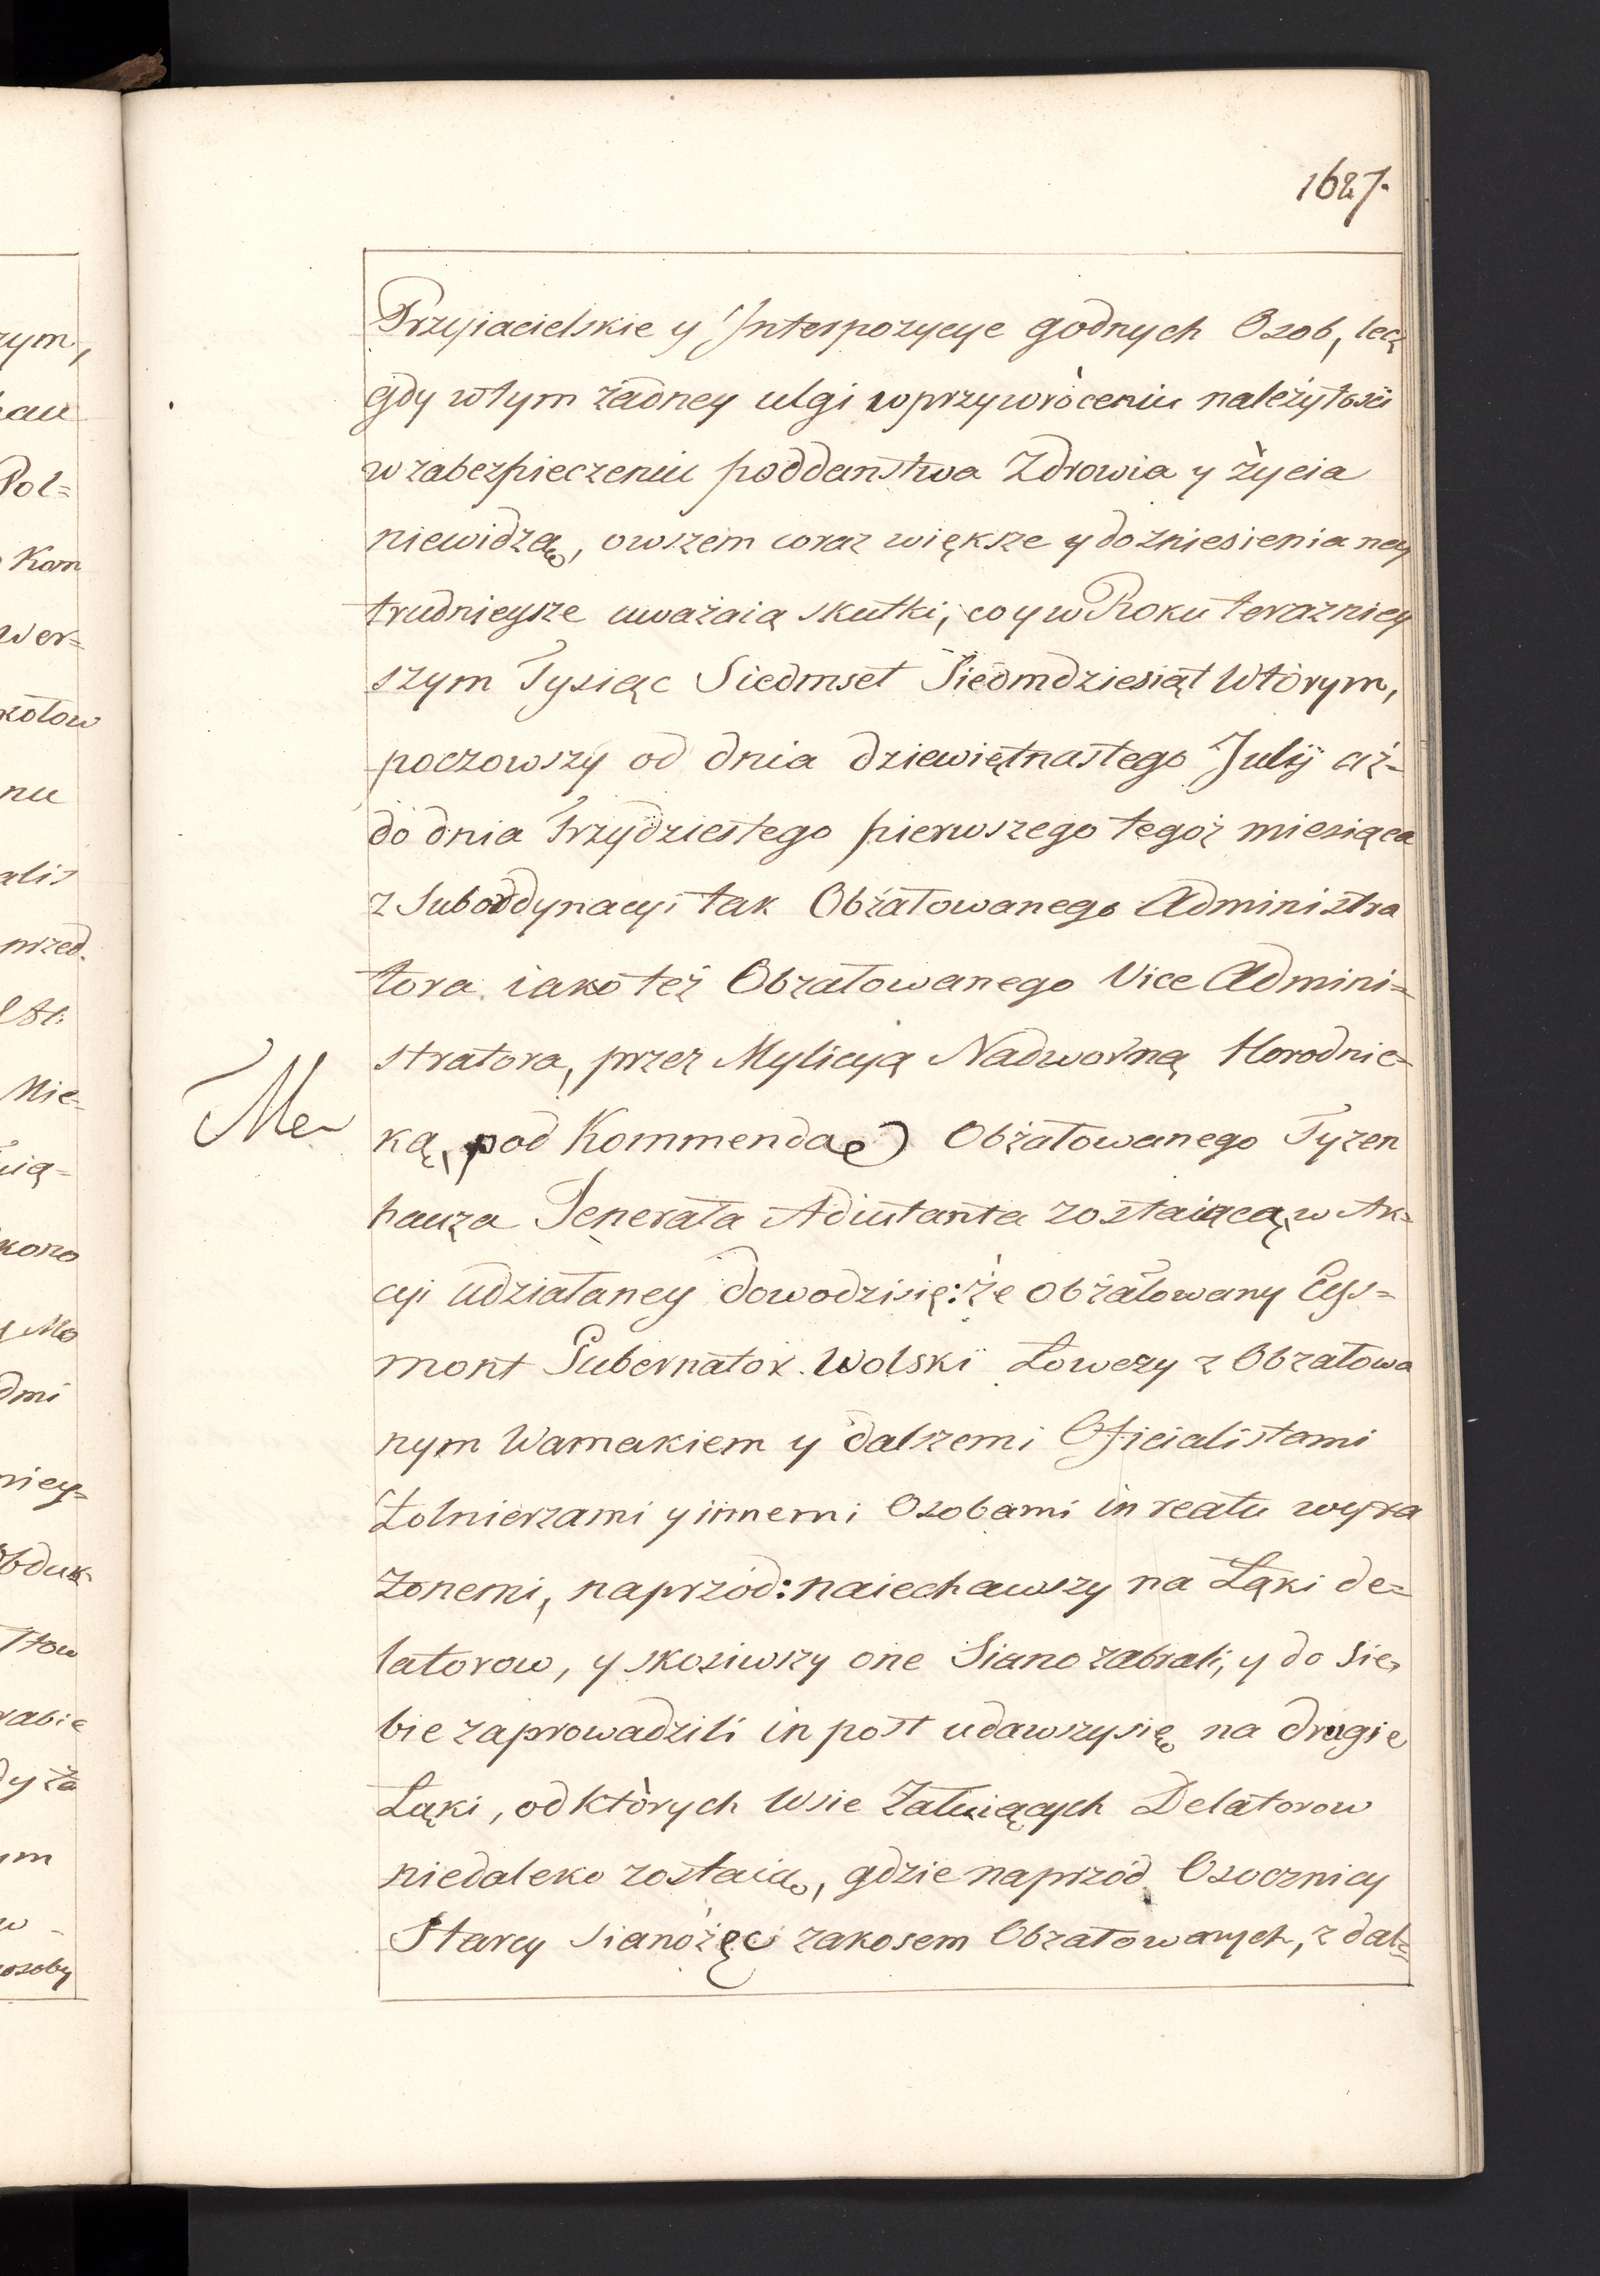 1627.
Przyiacielskie y Interpozycye godnych Osob, lecz
gdy wtym żadney ulgi w przywróceniu należytości
w zabezpieczeniu poddanstwa Zdrowia y życia
niewidzą, owszem coraz większe y do zniesienia nay
trudnieysze uważaią skutki, co y w Roku terazniey
szym Tysiąc Siedmset Siedmdziesiąt Wtórym,
poczowszy od dnia dziewiętnastego Julij aż-
do dnia Trzydziestego pierwszego tegoż miesiąca
z Subordynacyi tak Obżałowanego Administra
tora iako też Obżałowanego Vice Admini=
stratora, przez Mylicyą Nadworną Horodnic=
ką, pod Kommendą Obżałowanego Tyzen
hauza Generała Adiutanta zostaiącą, w Ak=
cyi udziałaney dowodzisię: że obżałowany Eys=
mont Gubernator Wolski Łowczy z Obżałowa
nym Warnakiem y dalszemi Oficialistami
Żołnierzami y innemi Osobami in reatu wyra
żonemi, naprzód: naiechawszy na Łąki de=
latorow, y skosiwszy one Siano zabrali, y do Sie=
bie zaprowadzili in post udawszysię na drugie
Łąki, od których Wsie Żałuiących Delatorow
niedaleko zostaią, gdzie naprzód Osocznicy
Starcy Sianożęci zakosem Obżałowanych, z dal=
zym,
Pol=
Kom
wer=
kołow
nu
alis
przed.
Mie=
kono
y Mo
dmi
niey=
Obduk
rabie
dy za
ym
w
osoby